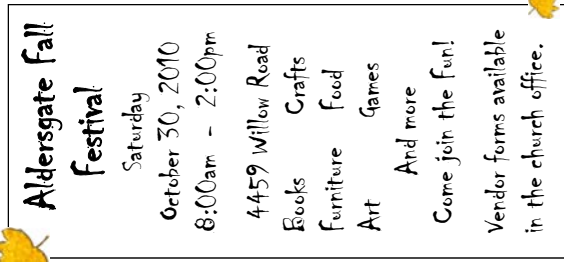 Aldersgate Fall
Festival
Saturday
October 30, 2010
8:00am - 2:00pm
4459 Willow Road
Books Crafts
Furniture Food
Art Games
And more
Come join the Fun!
Vendor forms available
in the church office.